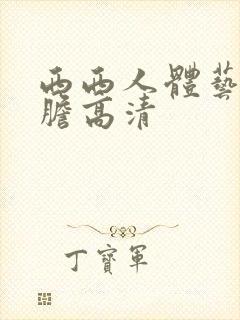 西西人體藝
膽高清
丁寶軍